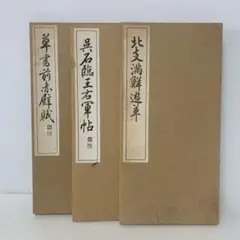 草書前赤壁賦
呉石臨王右軍帖
北支満鮮遊草